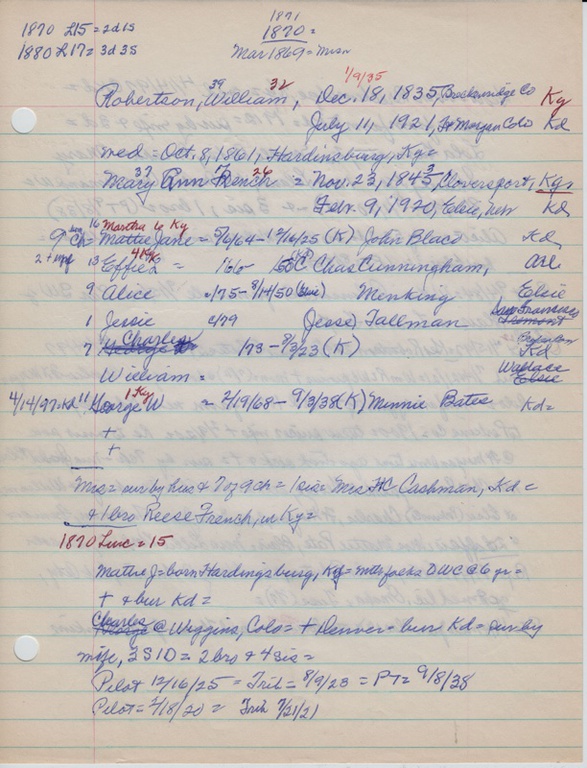 1870 L15 = 2d 1s
1871
1870 =
1880 L17 = 3d 3s
Mar 1869 = Mssn
39 32 1/9/35
Robertson, William, Dec. 18, 1835, Breckenridge Co Ky
July 11, 1921, Ft Morgan Colo Kd
med = Oct. 8, 1861, Hardinsburg, Ky =
37 7 26 3
Mary Ann French = Nov. 23, 1845, Cloversport, Ky,
Febr. 9, 1920, Elsie, Neb Kd
16 Martha 6 Ky
= 9 ch = Mattie Jane = 5/6/64 - 12/16/25 (K) John Black Kd,
2 + inf 13 Effie 4 Ky = 166- Chas Cunningham, Ore
9 Alice c/75 - 8/14/50 Menking Elsie
San Francisco
1 Jessie c/79 (Jesse) Tallman
Charles
7 George 173 - 8/3/23 (K) Kd
William = Wallace
Elsie
1 Ky
4/14/97 = Kd 11 George W = 2/19/68 - 9/3/38 (K) Minnie Bates Kd =
+
+
Mrs = sur by hus & 7 of 9 ch = 1 sis = Mrs HC Cashman, Kd =
& 1 bro Reese French, in Ky =
1870 Linc = 15
Mattie J = born Hardingsburg, Ky = DWC @ 6 yr =
+ & bur Kd =
Charles
George @ Wiggins, Colo = + Denver = bur Kd = sur by
wife, 2S 1D = 2 bro & 4 sis =
Pilot 12/16/25 = Trib = 8/9/23 = PT = 9/8/38
Pilot = 2/18/20 = Trib 7/21/21